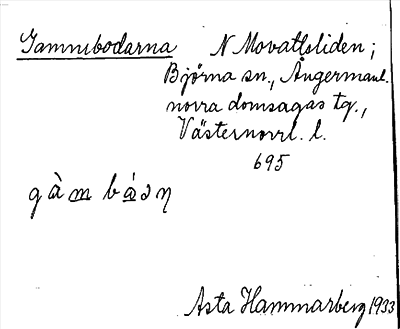 Gammbodarna N Movattsliden;
Björna sn., Ångermanl.
norra domsagas tg.,
Västernorrl. l.
695
g à m b á ɔ η
Asta Hammarberg 1933